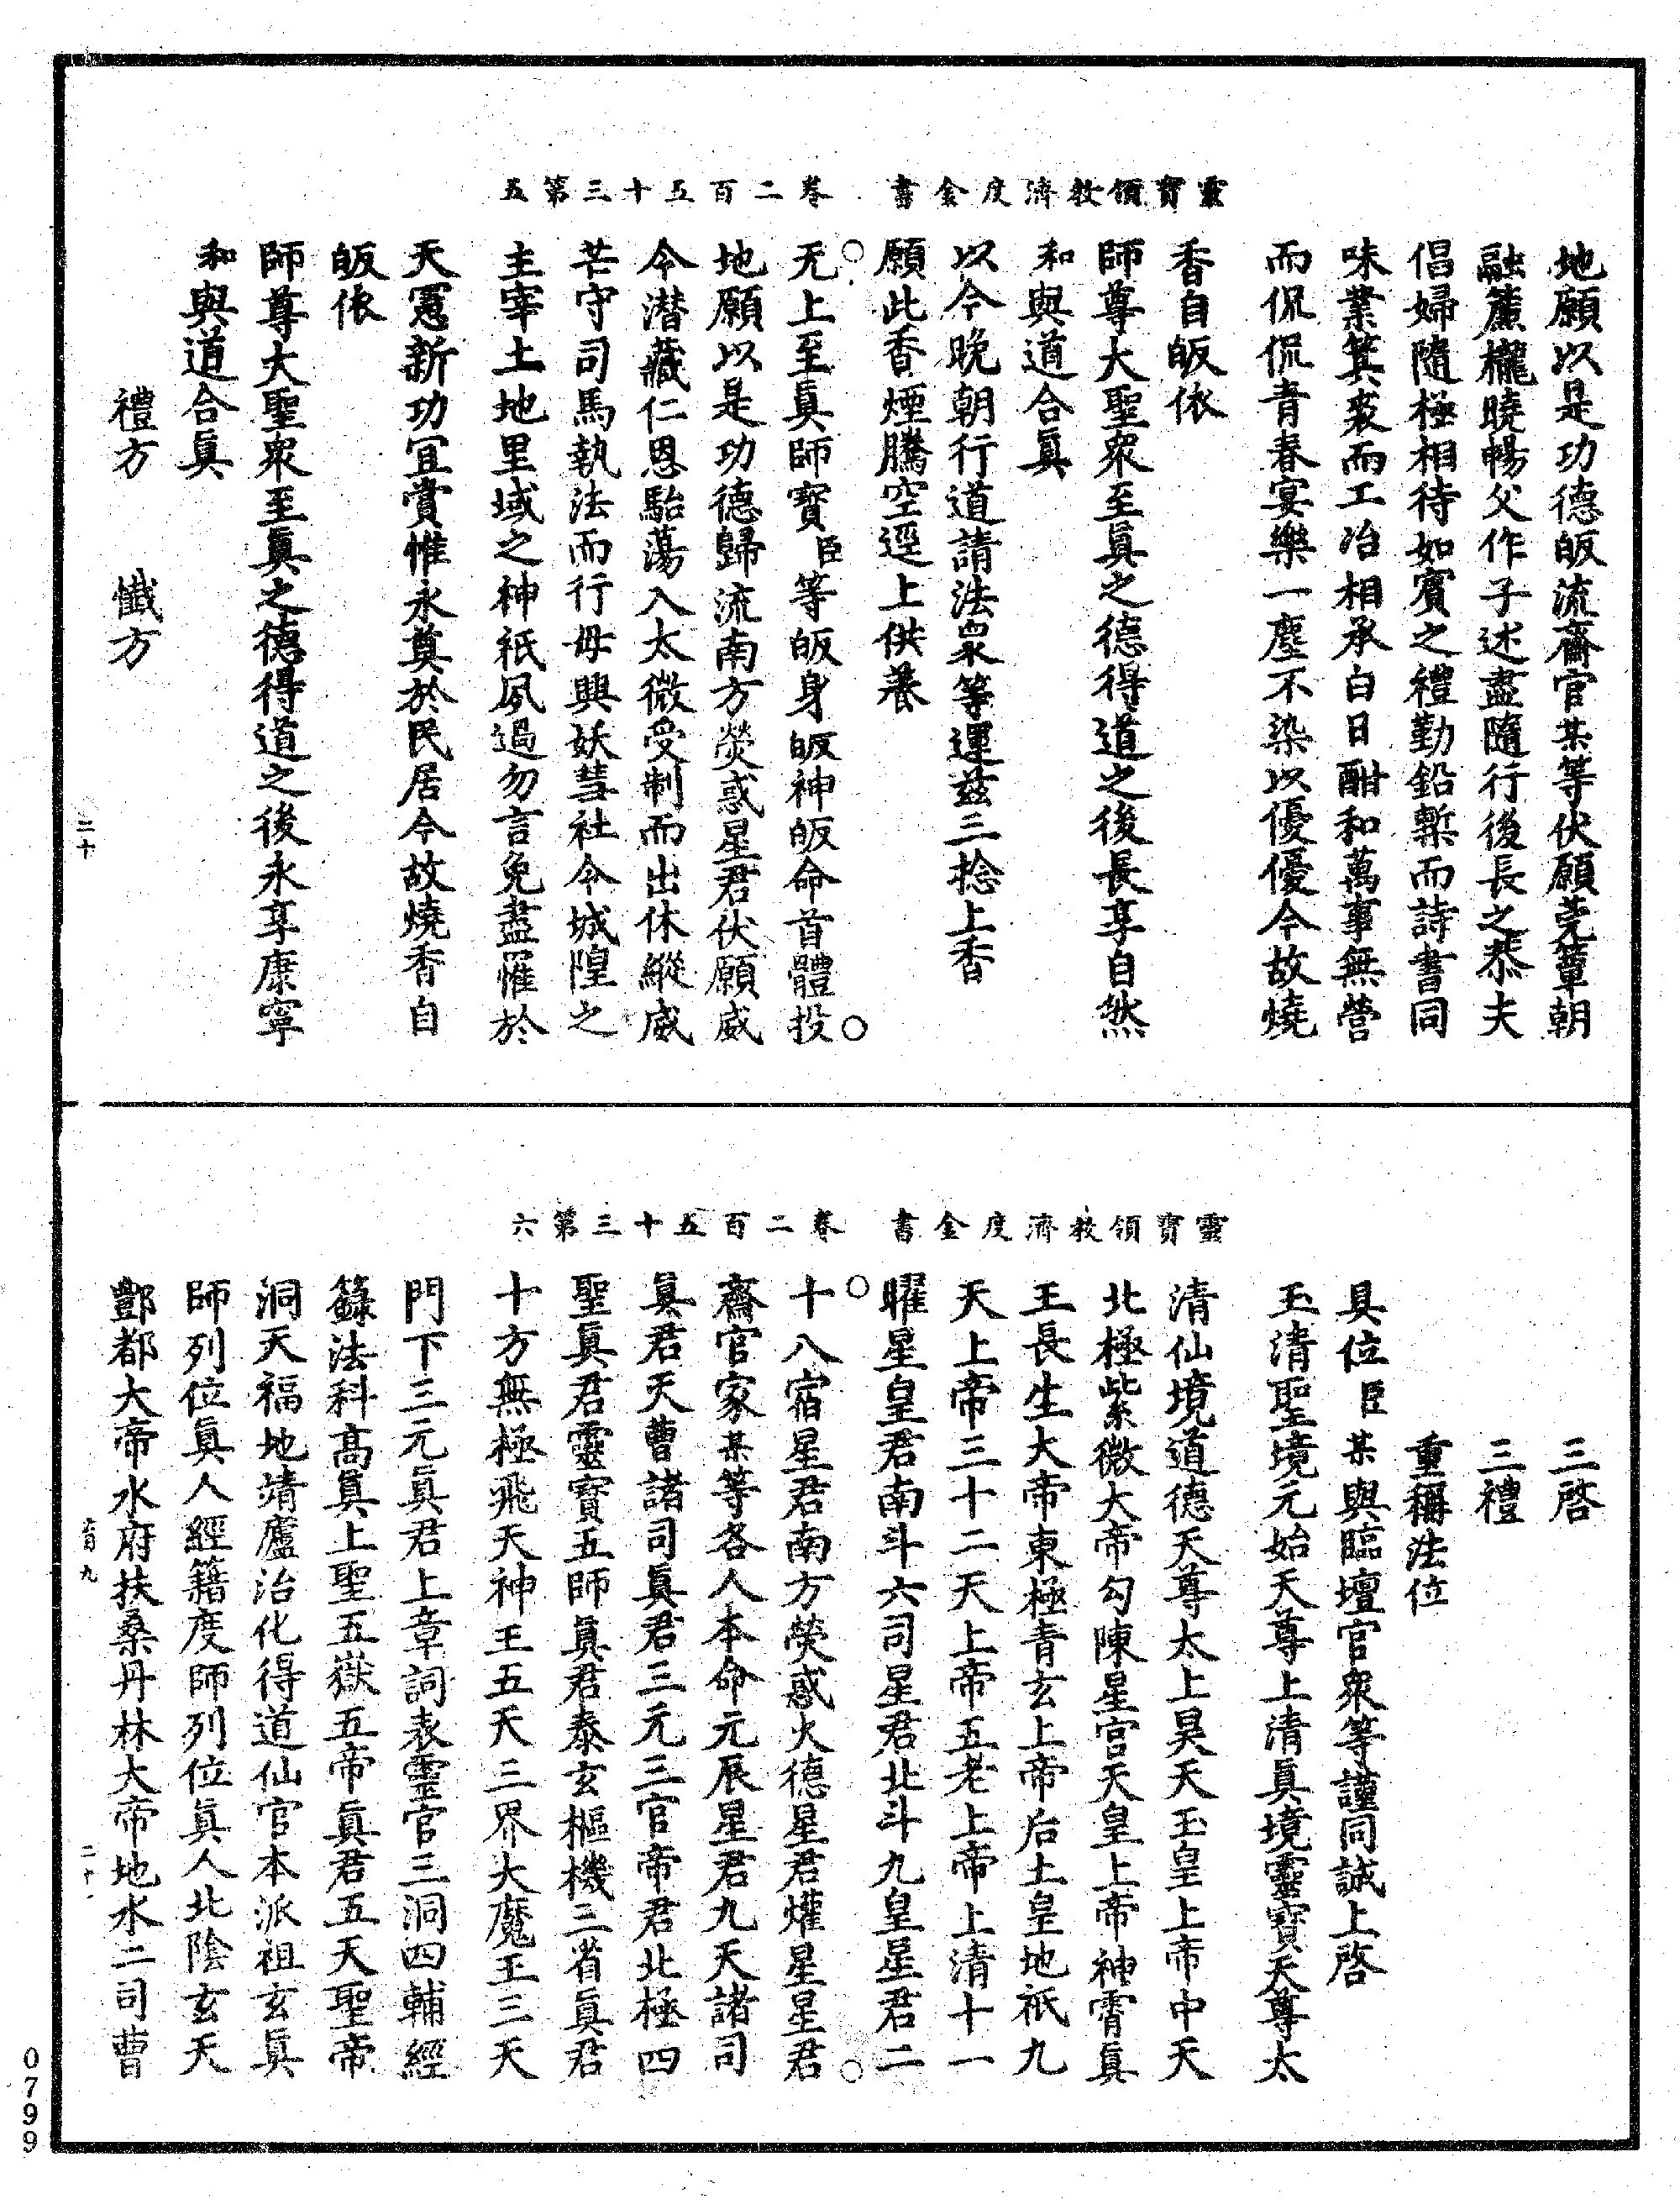 靈寶領教濟度金書　卷二百五十三第五
地願以是功德皈流齋官某等伏願莞簟朝
融簾櫳曉暢父作子述盡隨行後長之恭夫
倡婦隨極相待如賓之禮勤鉛槧而詩書同
味業箕裘而工冶相承白日酣和萬事無營
而侃侃青春宴樂一塵不染以優優今故燒
香自皈依
師尊大聖眾至眞之德得道之後長享自然
和與道合眞
以今晚朝行道請法眾等運茲三捻上香
願此香煙騰空逕上供養
无上至眞師寶臣等皈身皈神皈命首體投
地願以是功德歸流南方熒惑星君伏願威
令潛藏仁恩駘蕩入太微受制而出休縱威
芒守司馬執法而行毋興妖彗社令城隍之
主宰土地里域之神祇夙過勿言免盡罹於
天憲新功宜賞惟永奠於民居今故燒香自
皈依
師尊大聖眾至眞之德得道之後永享康寧
和與道合眞
禮方　懺方
二十
靈寶領教濟度金書　卷二百五十三第六
三啓
三禮
重稱法位
具位臣某與臨壇官眾等謹同誠上啓
玉清聖境元始天尊上清眞境靈寶天尊太
清仙境道德天尊太上昊天玉皇上帝中天
北極紫微大帝勾陳星宮天皇上帝神霄眞
王長生大帝東極青玄上帝后土皇地祇九
天上帝三十二天上帝五老上帝上清十一
曜星皇君南斗六司星君北斗九皇星君二
十八宿星君南方熒惑火德星君爟星星君
齋官家某等各人本命元辰星君九天諸司
眞君天曹諸司眞君三元三官帝君北極四
聖眞君靈寶五師眞君泰玄樞機三省眞君
十方無極飛天神王五天三界大魔王三天
門下三元眞君上章詞表靈官三洞四輔經
籙法科高眞上聖五嶽五帝眞君五天聖帝
洞天福地靖廬治化得道仙官本派祖玄眞
師列位眞人經籍度師列位眞人北陰玄天
酆都大帝水府扶桑丹林大帝地水二司曹
二十一
0799